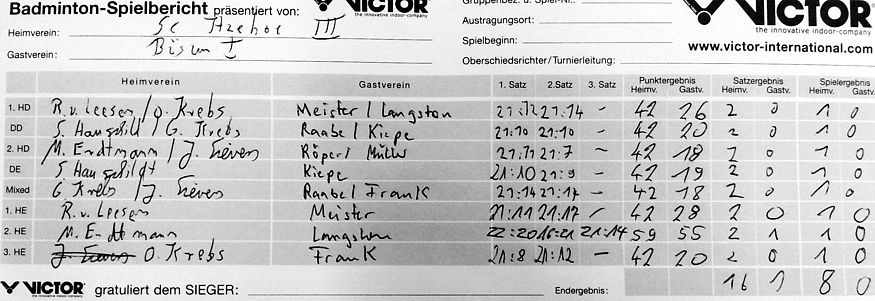 Badminton-Spielbericht präsentiert von: VICTOR the innovative indoor-company
Gruppenbez. u. Spiel-Nr.:
VICTOR the innovative indoor-company
Heimverein: SC III
Austragungsort:
Gastverein: I
Spielbeginn:
www.victor-international.com
Oberschiedsrichter/Turnierleitung:
Heimverein Gastverein 1. Satz 2.Satz 3. Satz Punktergebnis Heimv. Gastv. Satzergebnis Heimv. Gastv. Spielergebnis Heimv. Gastv.
1. HD R.v. Leesen / O. Krebs Meister / Langston 21:14 - 42 26 2 0 1 0
DD S. / G. Krebs Raabe / Kiepe 21:10 21:10 - 42 20 2 0 1 0
2. HD M. Erdtmann / J. Sievers Röper / 21:7 - 42 18 2 0 1 0
DE S Kiepe 21:10 21:9 - 42 19 2 0 1 0
Mixed G Krebs / J. Sievers Raabe / Frank 21:14 - 42 18 2 0 1 0
1. HE R.v. Leesen Meister 21:11 21:17 - 42 28 2 0 1 0
2. HE M. Erdtmann 22:20 16:21 21:14 59 55 2 1 1 0
3. HE O. Krebs Frank 21:8 21:12 - 42 20 2 0 1 0
16 1 8 0
VICTOR the innovative indoor-company gratuliert dem SIEGER: Endergebnis: